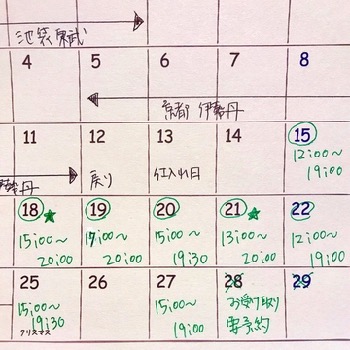 池袋東武
4 5 6 7 8
京都 伊勢丹
11 12 13 14 15
勢丹 戻り 仕入れ日 12:00〜
19:00
18★ 19 20 21★ 22
15:00〜 17:00〜 15:00〜 13:00〜 12:00〜
20:00 20:00 19:30 20:00 19:00
25 26 27 28 29
15:00〜 15:00〜 お受け取り
19:30 19:00 要予約
クリスマス